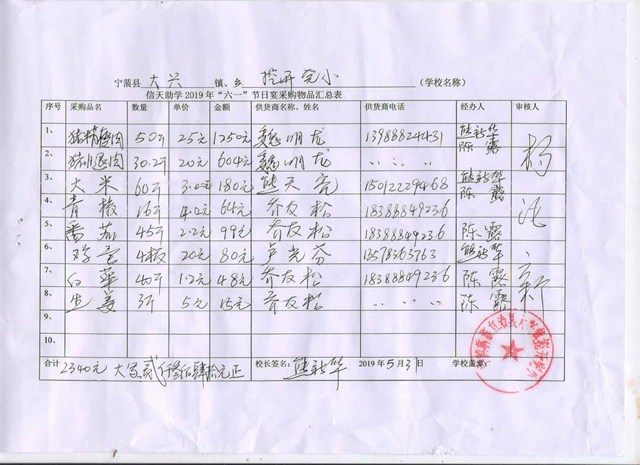 宁蒗县 大兴 镇、乡 挖开完小 （学校名称）
信天助学 2019 年“六一”节日宴采购物品汇总表
序号 采购品名 数量 单价 金额 供货商名称、姓名 供货商电话 经办人 审核人
1、 猪精瘦肉 50斤 25元 1250元 魏明龙 13988824431 熊新华 陈露
2、 猪腿肉 30.2斤 20元 604元 魏明龙 〃 〃 〃
3、 大米 60斤 3.0元 180元 熊天亮 15012229468 熊新华 陈露
4、 青椒 16斤 4.0元 64元 乔友松 18388849236
5、 番茄 45斤 2.2元 99元 乔友松 18388849236 陈露
6、 鸡蛋 4板 20元 80元 卢光芬 13578365763 熊新华
7、 白萝 40斤 1.2元 48元 乔友松 18388849236 陈露
8、 生姜 3斤 5元 15元 乔友松 〃 〃 〃 陈露
9、
10、
合计 2340元 大写贰仟叁佰肆拾元正 校长签名： 熊新华 2019 年 5 月 3 日 学校盖章：